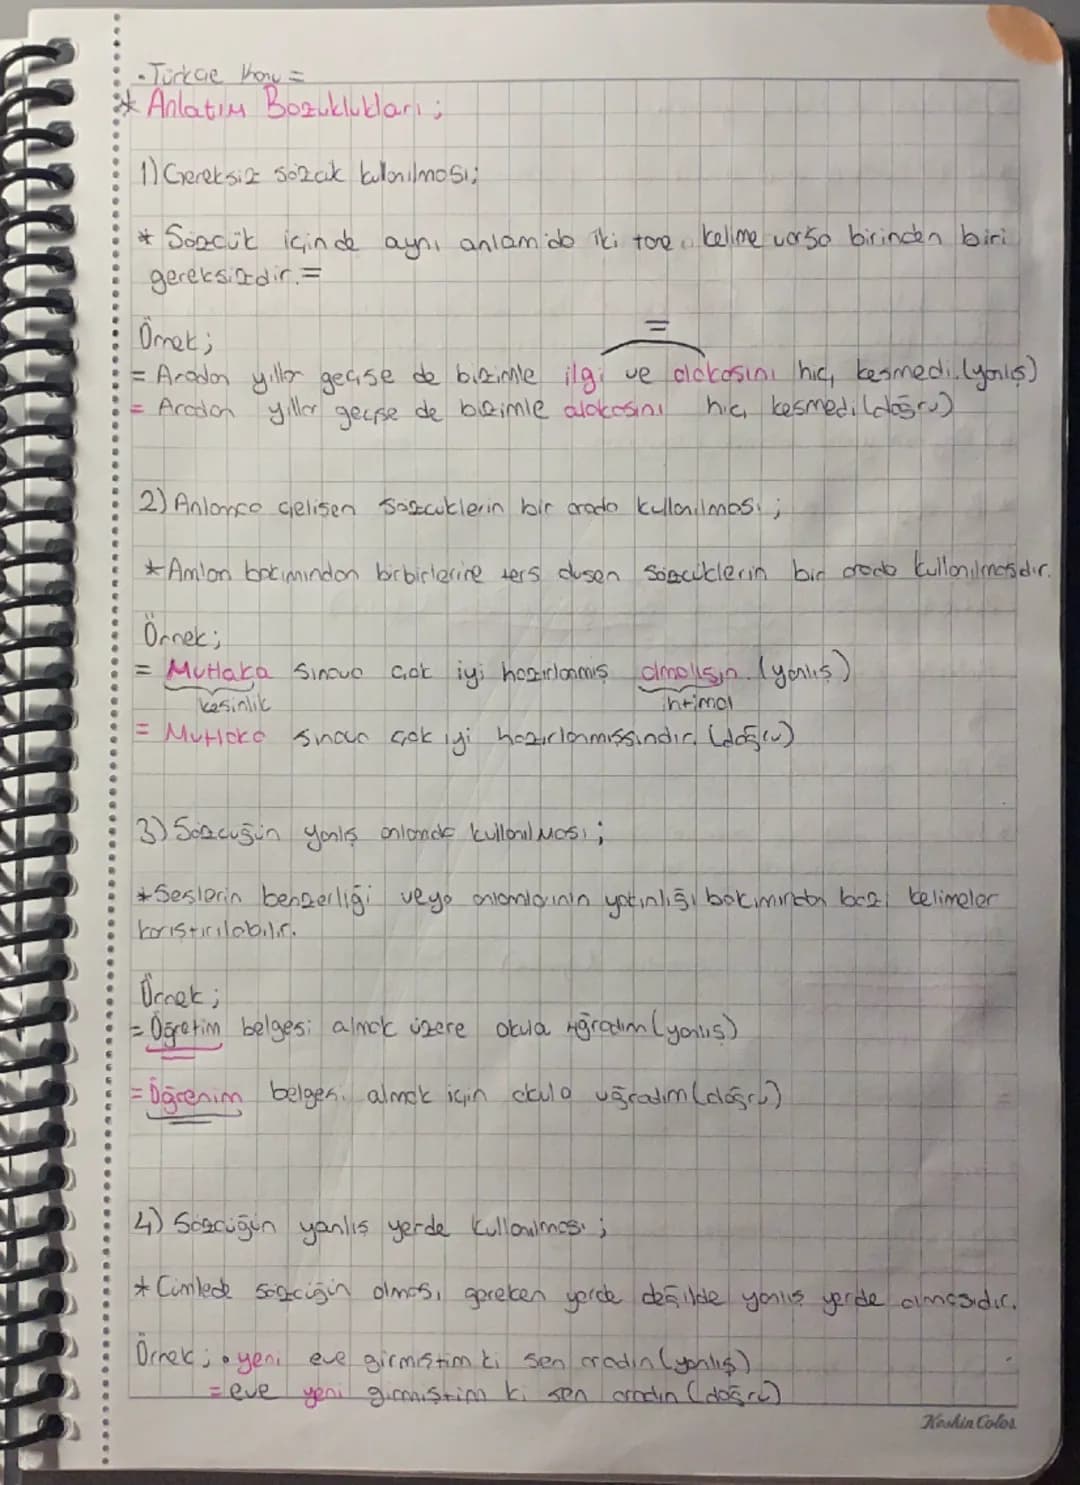 - Türkçe Konu =
* Anlatım Bozuklukları ;
1) Gereksiz sözcük kullanılması;
* Sözcük içinde aynı anlamda iki tane kelime varsa birinden biri
gereksizdir. =
Örnek ;
=
= Aradan yıllar geçse de bizimle ilgi ve alakasını hiç kesmedi. (yanlış)
= Aradan yıllar geçse de bizimle alakasını hiç kesmedi (doğru)
2) Anlamca çelişen sözcüklerin bir arada kullanılması ;
* Amlan bakımından birbirlerine ters düşen sözcüklerin bir arada kullanılmasıdır.
Örnek ;
= Mutlaka sınava çok iyi hazırlanmış olmalısın. (yanlış)
kesinlik ihtimal
= Mutlaka sınava çok iyi hazırlanmışsındır. (doğru)
3) Sözcüğün yanlış anlamda kullanılması ;
* Seslerin benzerliği veya anlamlarının yakınlığı bakımından bazı kelimeler
karıştırılabilir.
Örnek ;
= Öğretim belgesi almak üzere okula uğradım (yanlış)
= Öğrenim belgesi almak için okula uğradım (doğru)
4) Sözcüğün yanlış yerde kullanılması ;
* Cümlede sözcüğün olması gereken yerde değilde yanlış yerde olmasıdır.
Örnek ; • yeni eve girmiştim ki sen aradın (yanlış)
= eve yeni girmiştim ki sen aradın (doğru)
Keskin Color